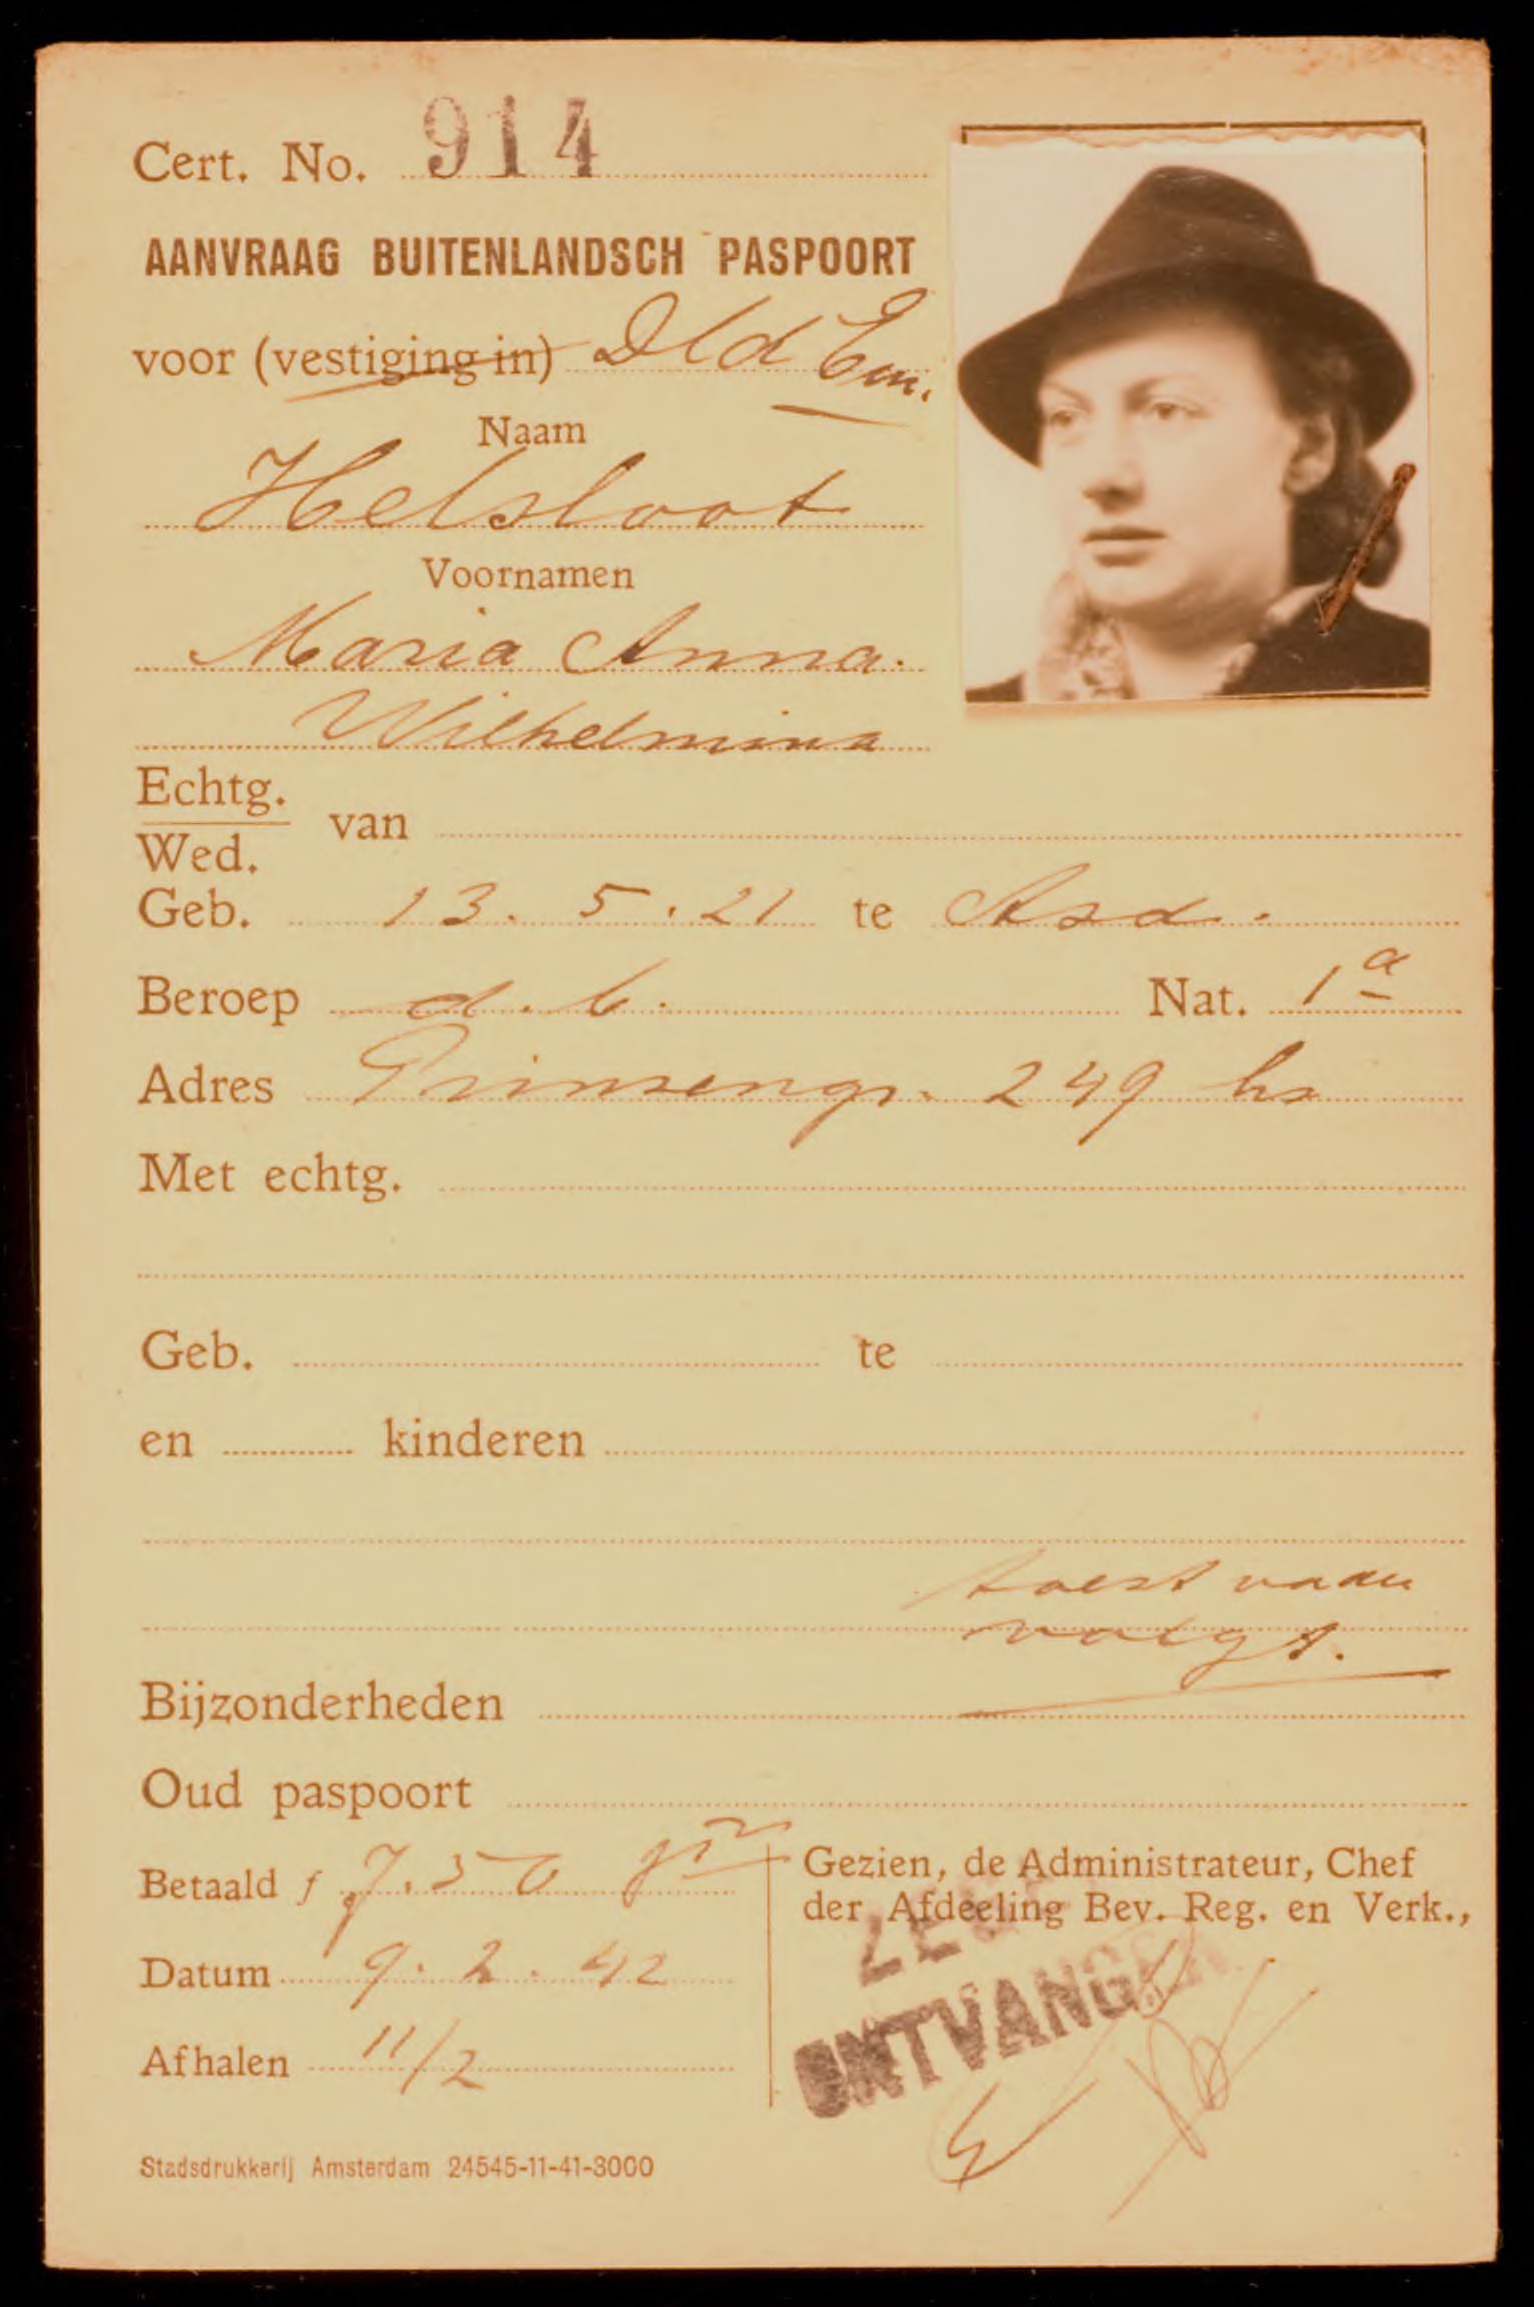 Cert. No. 914
AANVRAAG BUITENLANDSCH PASPOORT
voor (vestiging in) Dld Eur.
Naam
Helsloot
Voornamen
Maria Anna
Wilhelmina
Echtg.
Wed. van
Geb. 13.5.21 te Asd.
Beroep Nat. 1a
Adres Prinsengr. 249 hs
Met echtg.
Geb. te
en kinderen
toest vader
volgt.
Bijzonderheden
Oud paspoort
Betaald f 7.50
Gezien, de Administrateur, Chef
der Afdeeling Bev. Reg. en Verk.,
Datum 9.2.42
ONTVANGEN
Afhalen 11/2
Stadsdrukkerij Amsterdam 24545-11-41-3000